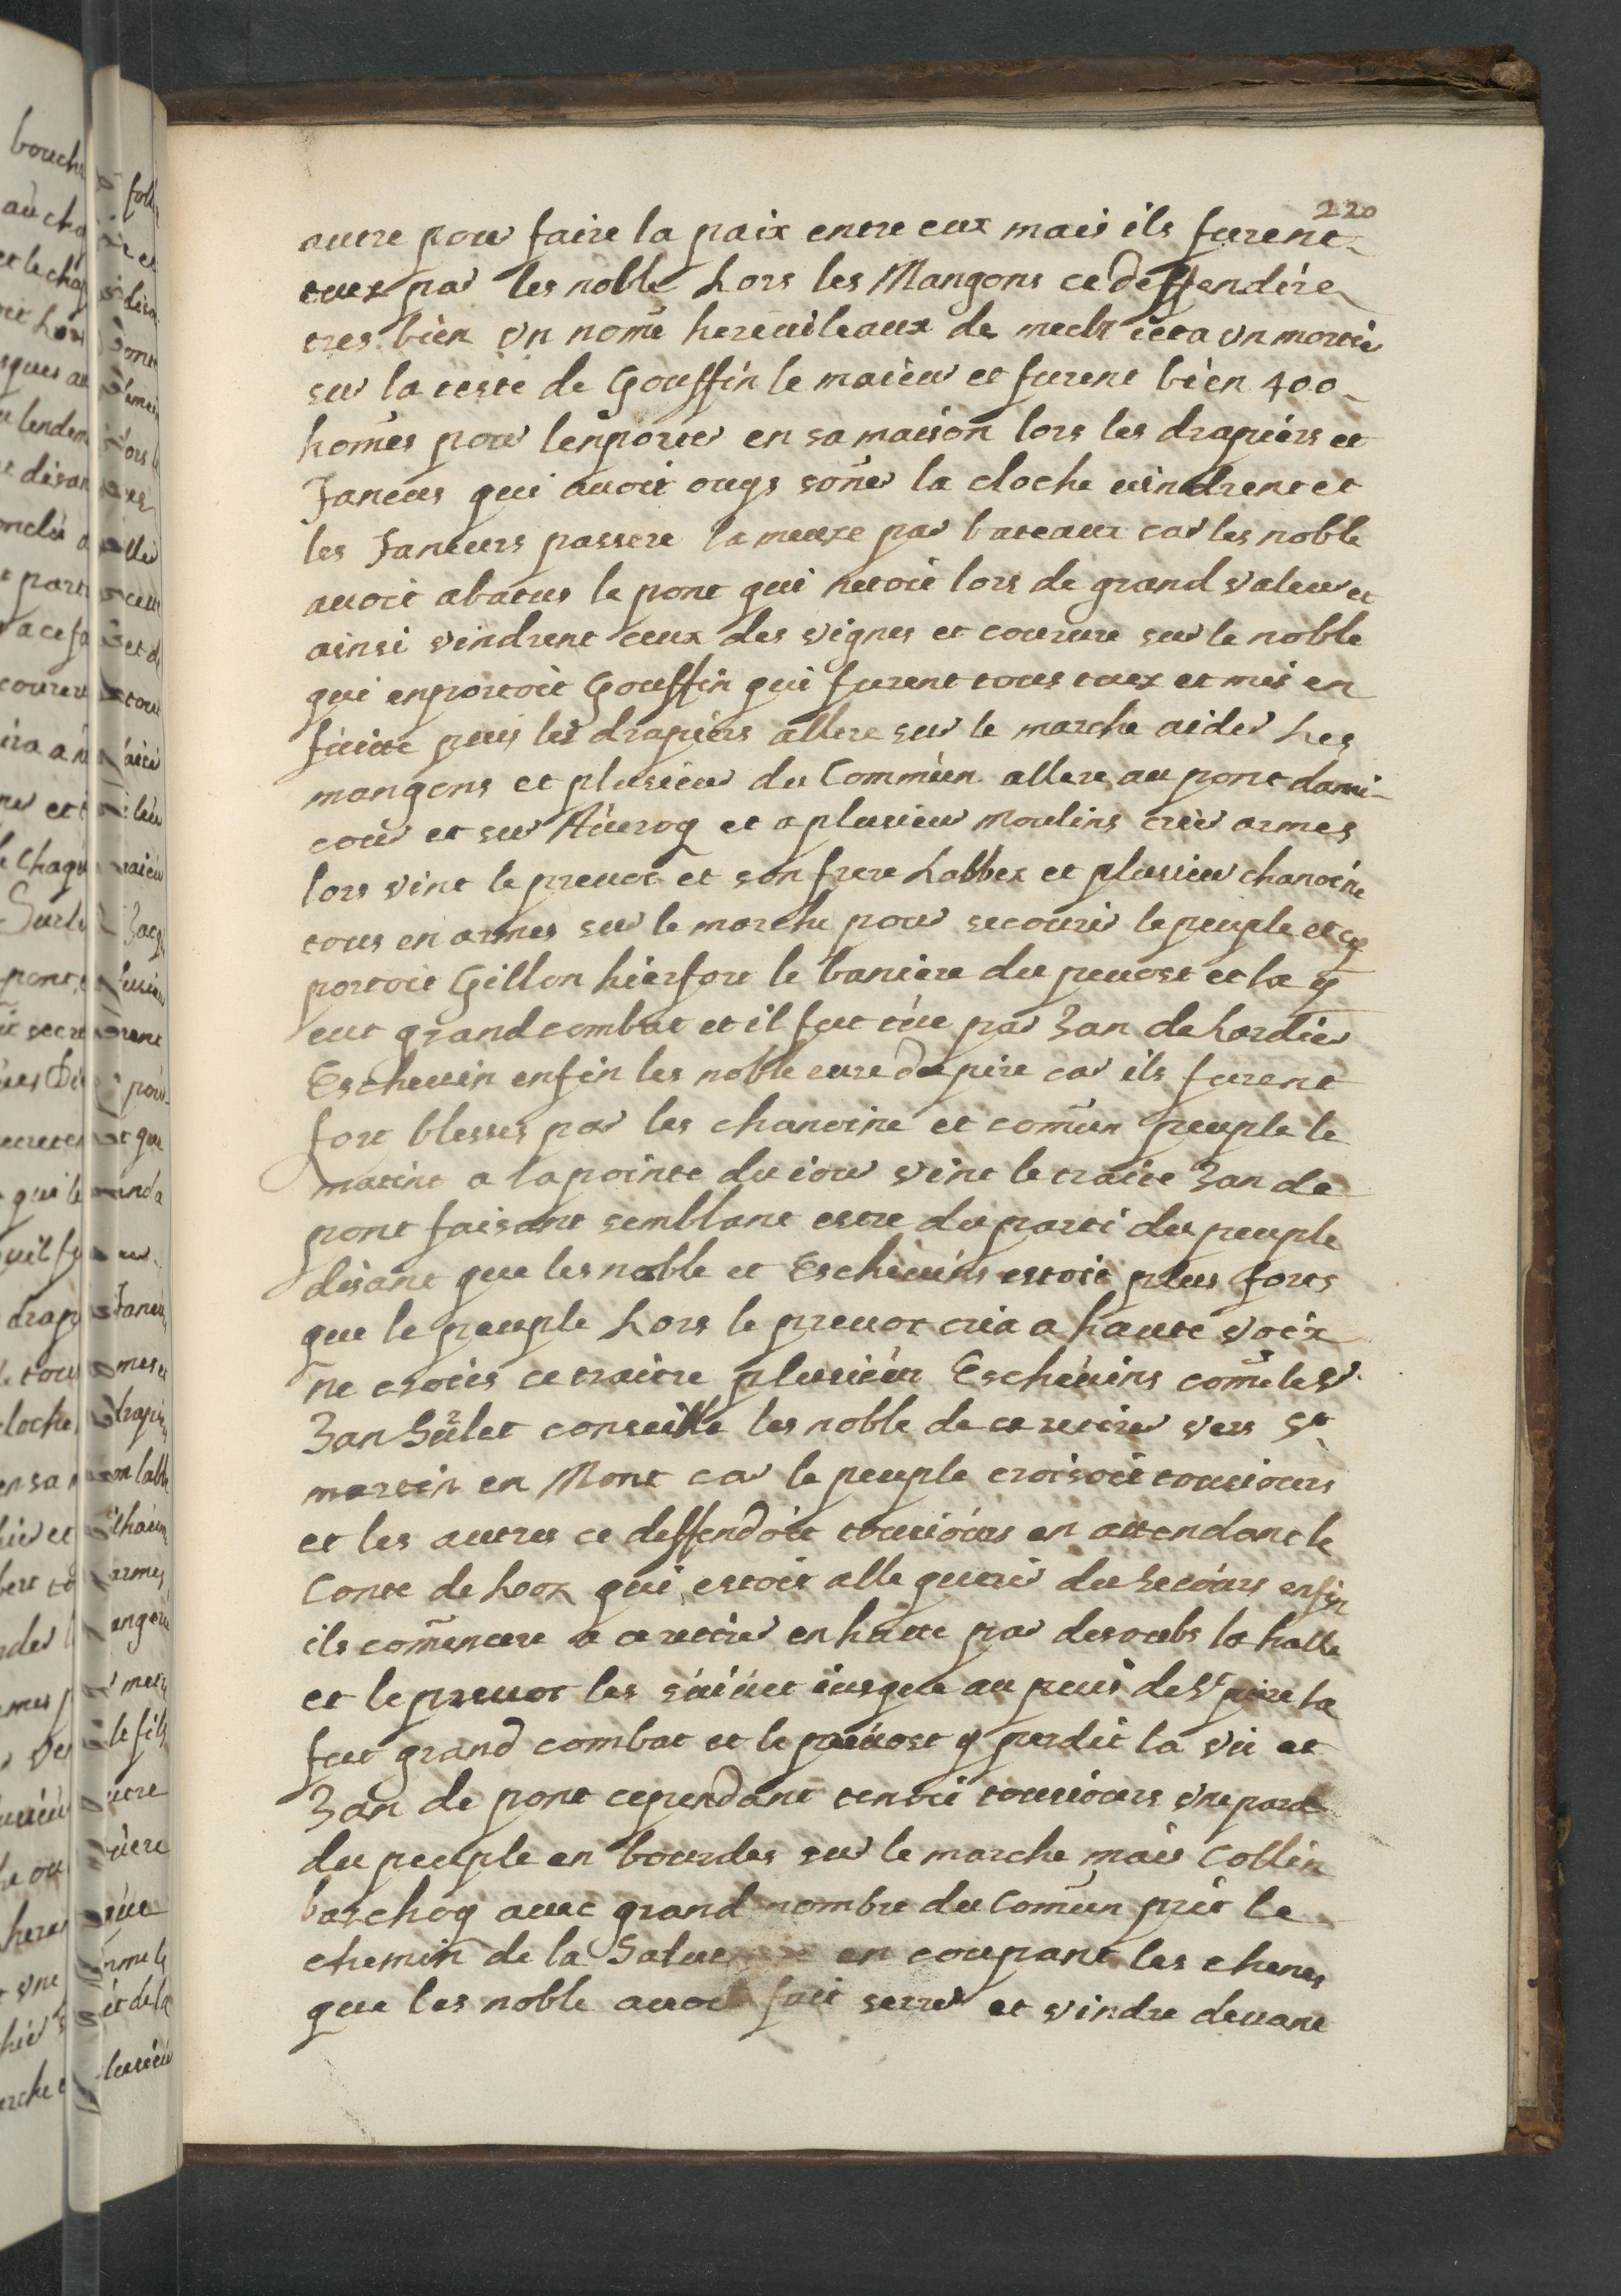 220
autre pour faire la paix entre eux mais ils furent
tuez par les noble Lors les Mangons ce deffendire
tres bien vn nomé hereuileaux de mecht ieta vn mortie
sur la teste de Gouffin le maieur et furent bien 400
homes pour lenporter en sa maison lors les drapiers et
Taneurs qui auoit ouys soñer la cloche vindrent et
les Taneurs passere la meuze par bateaux car les noble
auoit abatus le pont qui netoit lors de grand valeur et
ainsi vindrent ceux des vignes et courure sur le noble
qui enportoit Gouffin qui furent tous tuez et mis en
fuitte puis les drapiers allere sur le marche aider Les
mangons et plusieur du Commun allere au pont dami-
cour et sur Auroy et a plusieur moulins crier armes
lors vint le preuot et son frere Labbez et plusieur chanoine
tous en armes sur le marche pour secourir le peuple et
portoit Gillon hierfort le baniere du preuost et la y
eut grand combat et il fut tüe par Jan de Lardier
Escheuin enfin les noble eure du pire car ils furent
fort blesses par les chanoine et comũn peuple le
matint a la pointe du iour vint le traite Jan de
pont faisant semblant estre du parti du peuple
disant que les noble et Escheuins estoit plus forts
que le peuple Lors le preuot cria a haute voix
ne croies ce traitre plusieur Escheuins coñe le Sr
Jan Surlet conseille les noble de ce retirer vers St
martin en Mont car le peuple croisoit tousiours
et les autres ce deffendoit tousiours en attendant le
Conte de Looz qui estoit alle querir du secours enfin
ils comẽncere a ce retirer en haute par desoubs la halle
et le preuot les suiuit iusque au puis de St piere la
fut grand combat et le preuost y perdit la vie et
Jan de pont cependant tenoi tousiours vne part
du peuple en bourdes sur le marche mais Collin
baschoy auec grand nombre du Comũn prit le
chemin de la Sauue en coupant les chenes
que les noble auoit fait serrer et vindre deuant